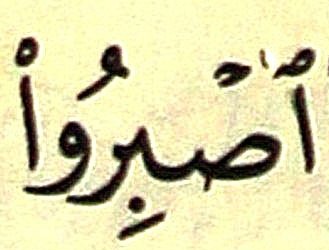 ٱصْبِرُوا۟